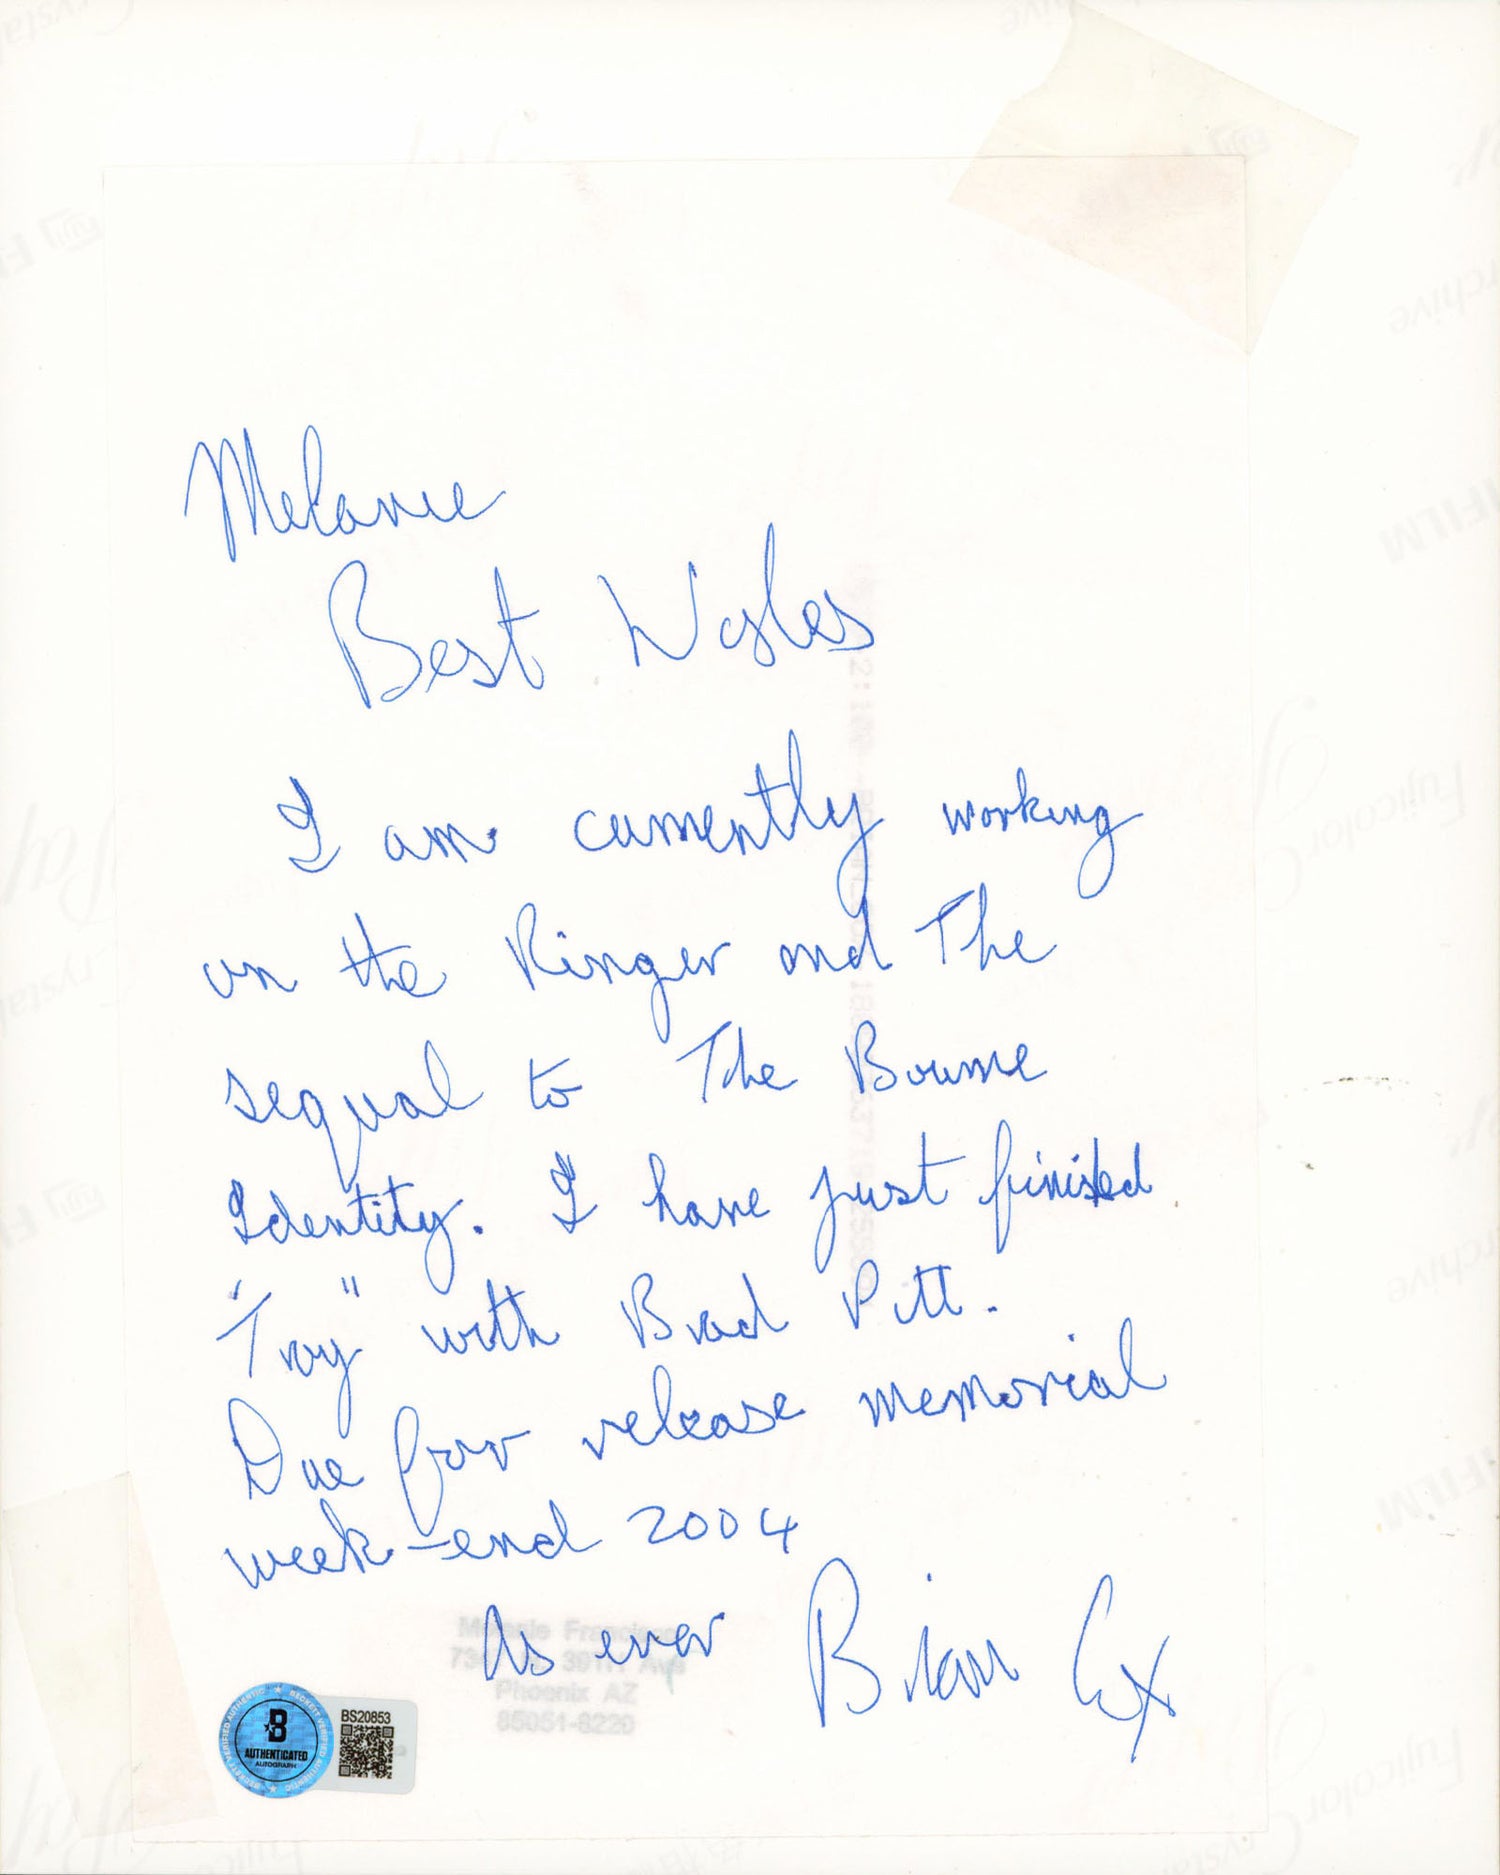 Melanie
Best Wishes
I am currently working
on the Ringer and The
sequal to The Bourne
Identity. I have just finished
"Troy" with Brad Pitt.
Due for release memorial
week-end 2004
As ever Brian Cox
Phoenix AZ
85051-8220
BS20853
B
AUTHENTICATED
AUTOGRAPH
FUJIFILM
Fujicolor
Crystal
Archive